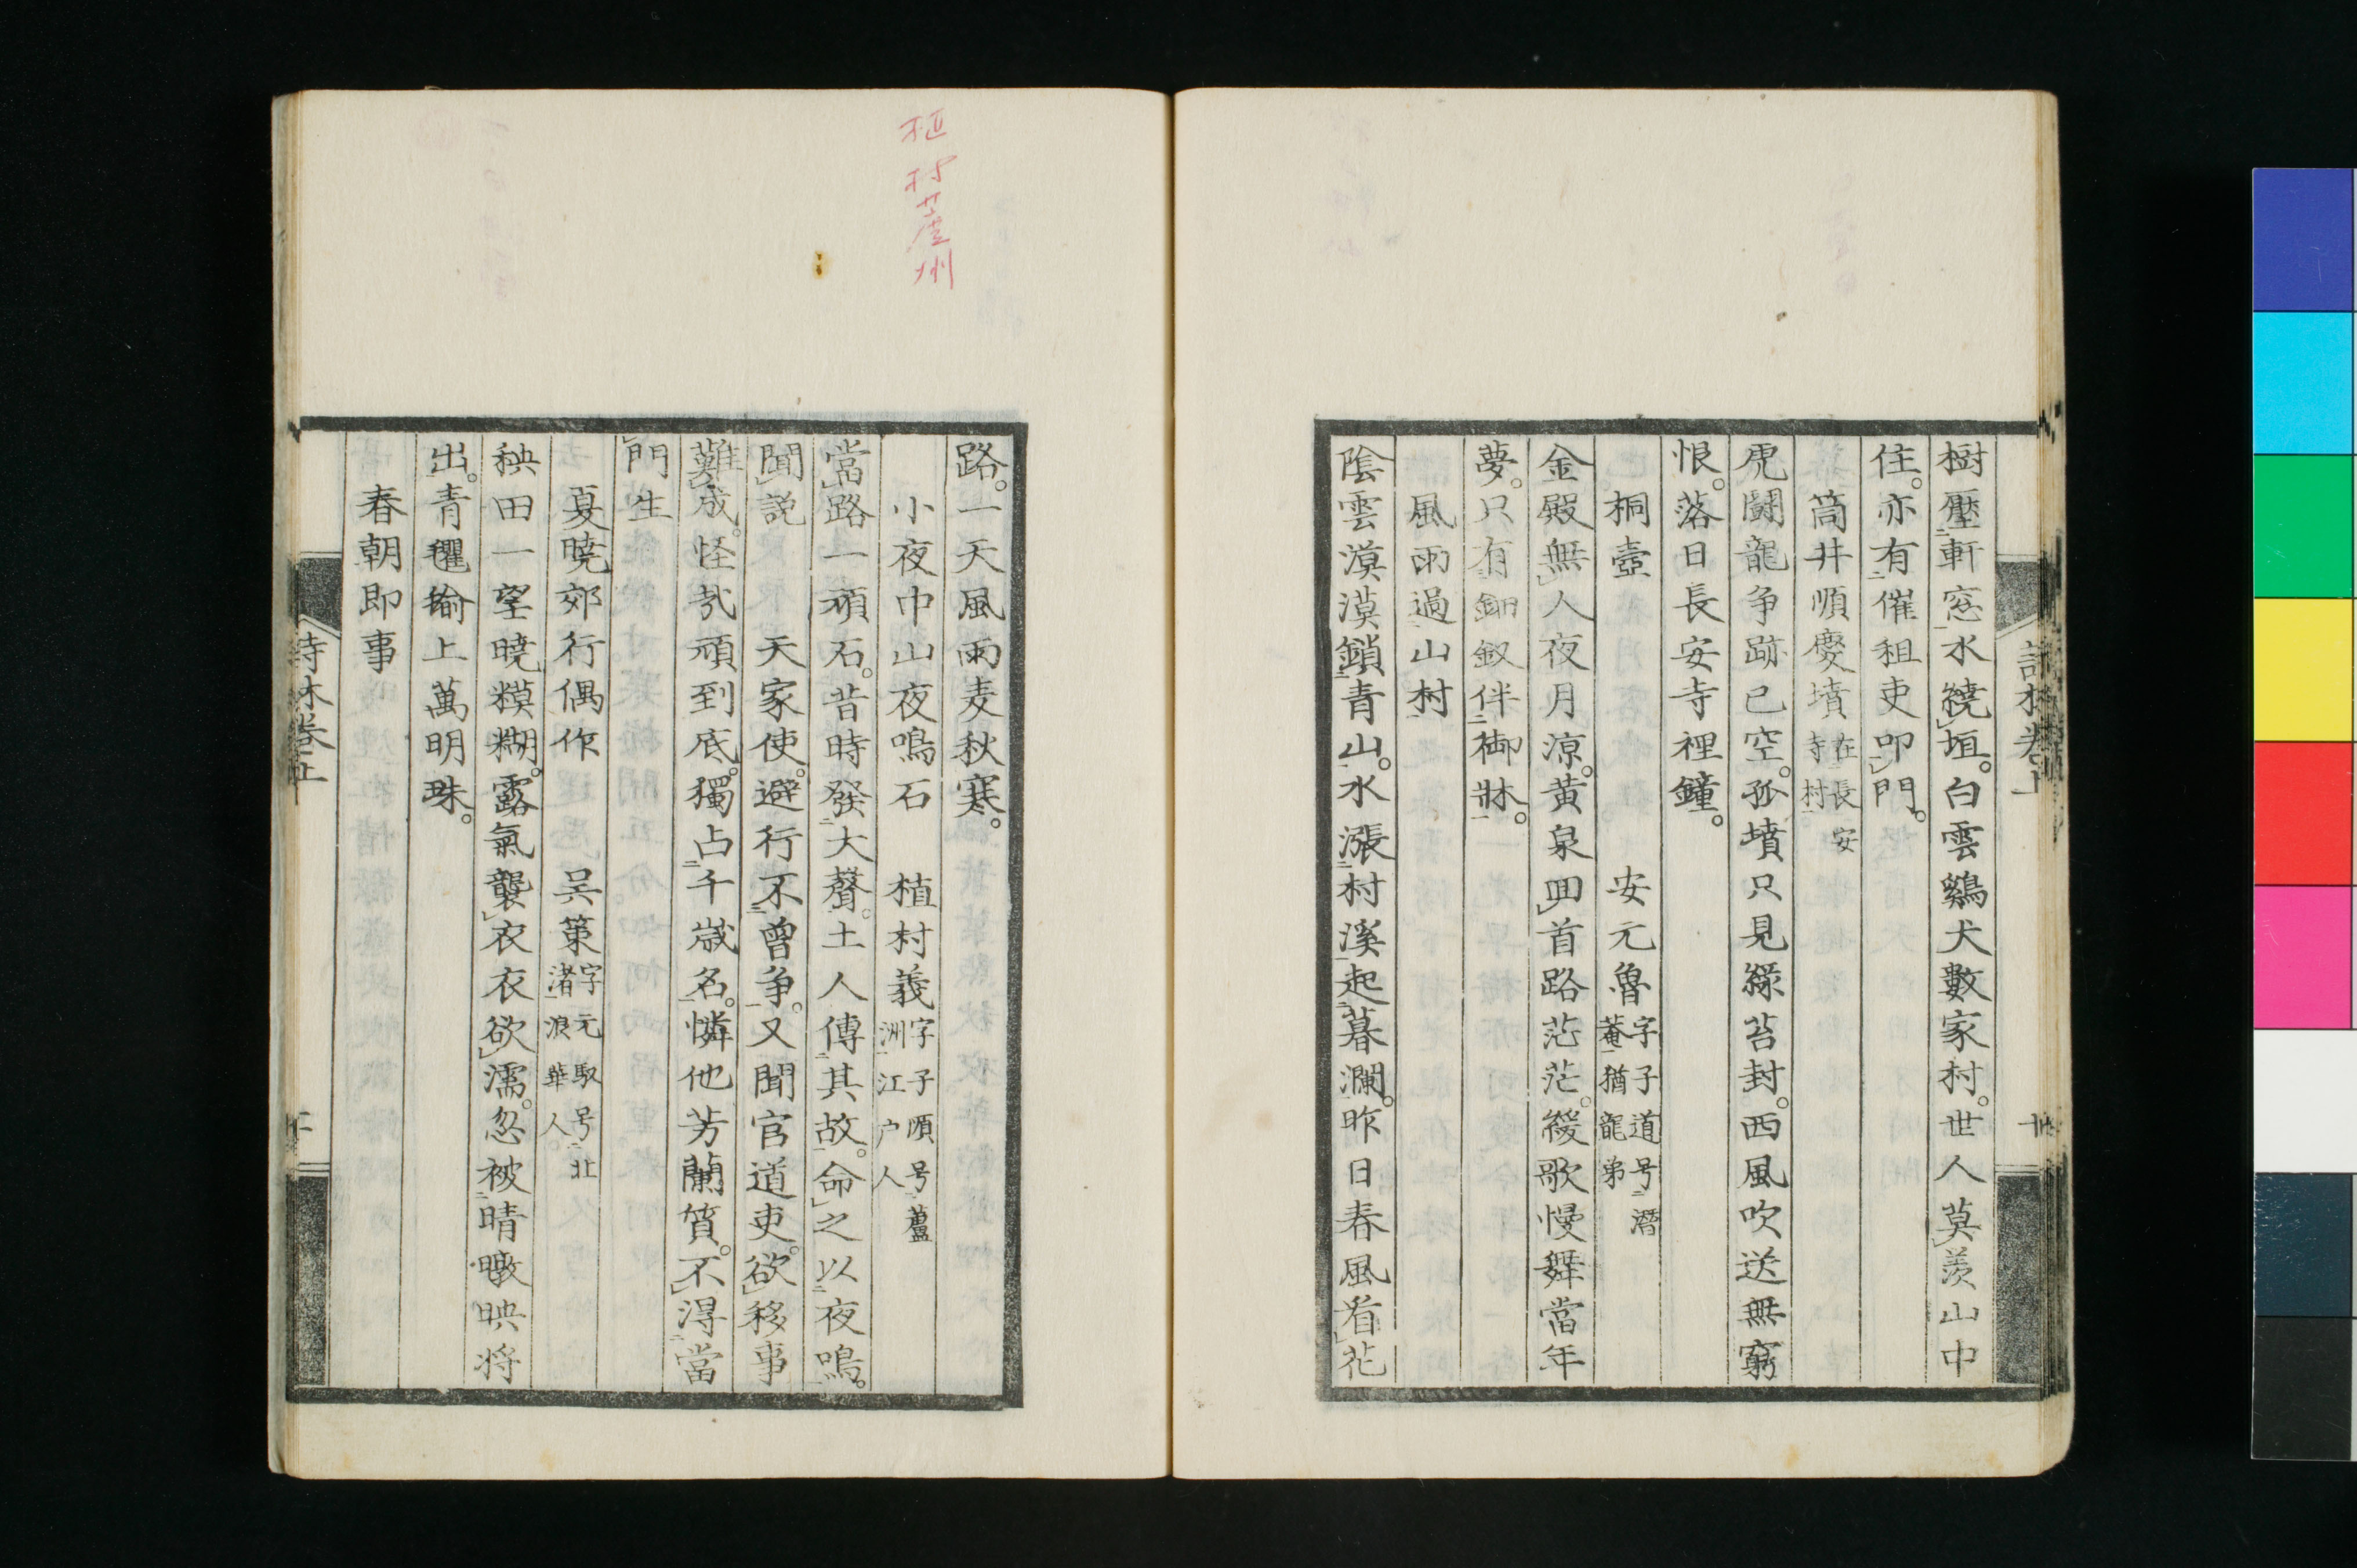 樹壓軒窓水繞垣。白雲鷄犬數家村。世人莫羨山中
住。亦有催租吏叩門。
筒井順慶墳在長安寺村
虎鬪龍争跡已空。孤墳只見綠苔封。西風吹送無窮
恨。落日長安寺裡鐘。
桐壺 安元魯字子道号潛菴猶龍弟
金殿無人夜月凉。黃泉囬首路茫茫。緩歌慢舞當年
夢。只有鈿釵伴御牀。
風雨過山村
陰雲漠漠鎖青山。水漲村溪起暮瀾。昨日春風看花
路。一天風雨麦秋寒。
小夜中山夜鳴石 植村義字子順号蘆洲江户人
當路一頑石。昔時發大聲。土人傳其故。命之以夜鳴。
聞説天家使。避行不曾争。又聞官道吏。欲移事
難成。怪哉頑到底。獨占千歳名。憐他芳蘭質。不得當
門生
夏曉郊行偶作 吴策字元馭号北渚浪華人
秧田一望曉糢糊。露氣襲衣衣欲濡。忽被晴暾映将
出。青䆉上萬明珠。
春朝即事
詩林卷上
植村蘆州